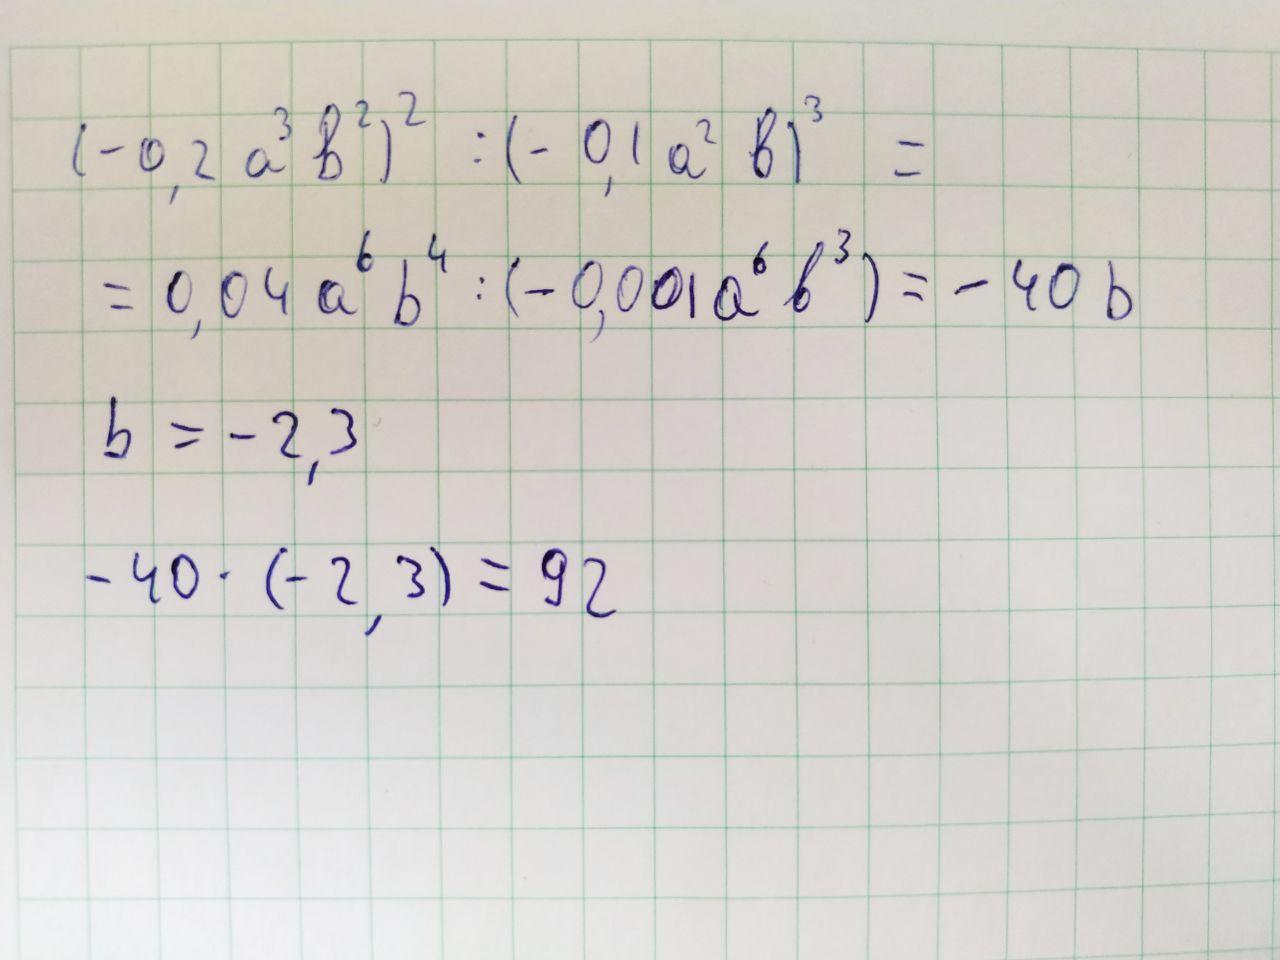 (-0,2 a³ b²)² : (- 0,1 a² b)³ =
= 0,04 a⁶ b⁴ : (-0,001a⁶ b³) = - 40 b
b = -2,3
-40 · (-2,3) = 92